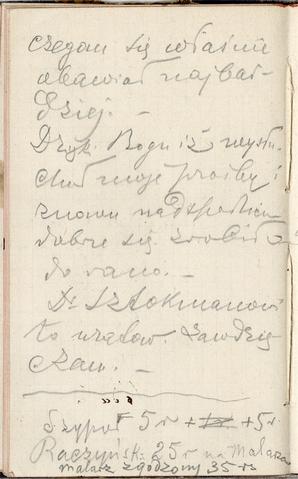 czegom się właśnie
obawiał najbar-
dziej. —
Dzięk. Bogu iż wysłu-
chał moje prośby i
znowu nadspodziew.
dobrze się zrobiło
do rana. —
Dr Sztokmanowi
to uratow. zawdzię-
czam. —
Szypoł 5 r + +5 r
Raczyńsk. 25 r na Malarza
malarz zgodzony 35 rs